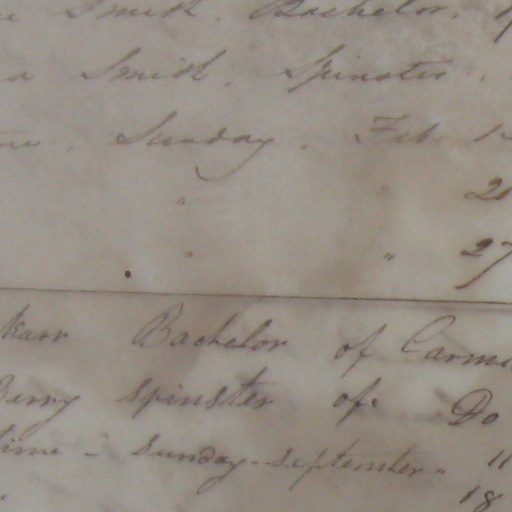 Smith. Bachelor.
a Smith. Spinster.
Sunday. Feb. 1
" " 20
" " 27
Bachelor of Carm
Berry Spinster of Do
time - Sunday - September " 11
" 18